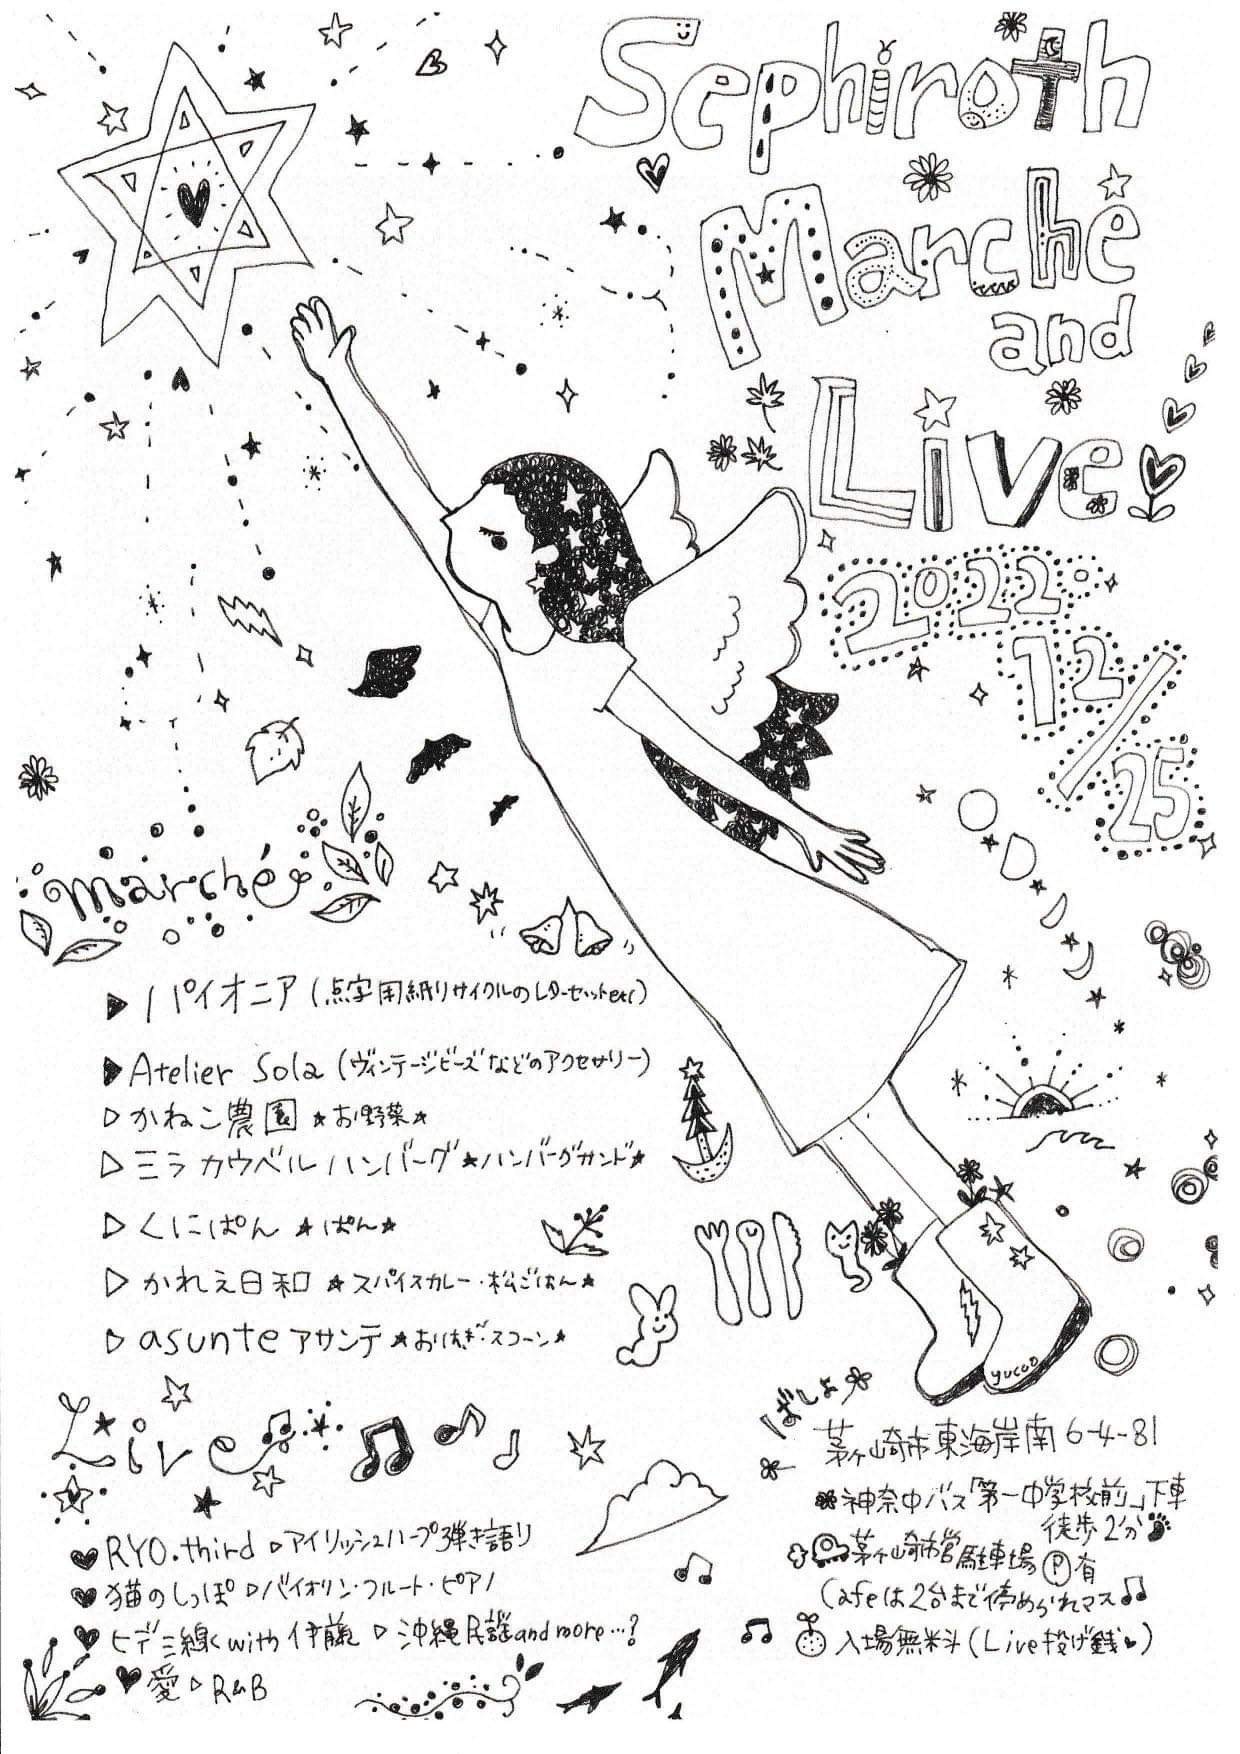 Sephiroth
Marché
and
Live
2022.
12/25
marché
パイオニア（点字用紙リサイクルのレターセットetc）
Atelier Sola（ヴィンテージビーズなどのアクセサリー）
かねこ農園 ★お野菜★
ミラカウベルハンバーグ★ハンバーグサンド★
くにぱん ★ぱん★
かれえ日和 ★スパイスカレー・松ごはん★
asunte アサンテ ★おはぎ・スコーン★
yucoo
Live
RYO.third ▷アイリッシュハープ弾き語り
猫のしっぽ ▷バイオリン・フルート・ピアノ
ヒデ三線く with 伊藤 ▷ 沖縄民謡 and more…?
愛 ▷ R&B
ばしょ
茅ヶ崎市東海岸南6-4-81
神奈中バス「第一中学校前」下車
徒歩2分
茅ヶ崎市営駐車場 Ⓟ有
Cafeは2台まで停められマス
入場無料（Live投げ銭）